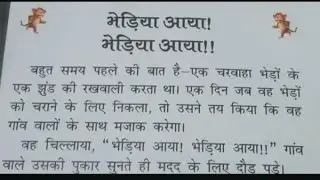 भेड़िया आया!
भेड़िया आया!!
बहुत समय पहले की बात है–एक चरवाहा भेड़ों के
एक झुंड की रखवाली करता था। एक दिन जब वह भेड़ों
को चराने के लिए निकला, तो उसने तय किया कि वह
गांव वालों के साथ मजाक करेगा।
वह चिल्लाया, “भेड़िया आया! भेड़िया आया!!” गांव
वाले उसकी पुकार सुनते ही मदद के लिए दौड़ पड़े।